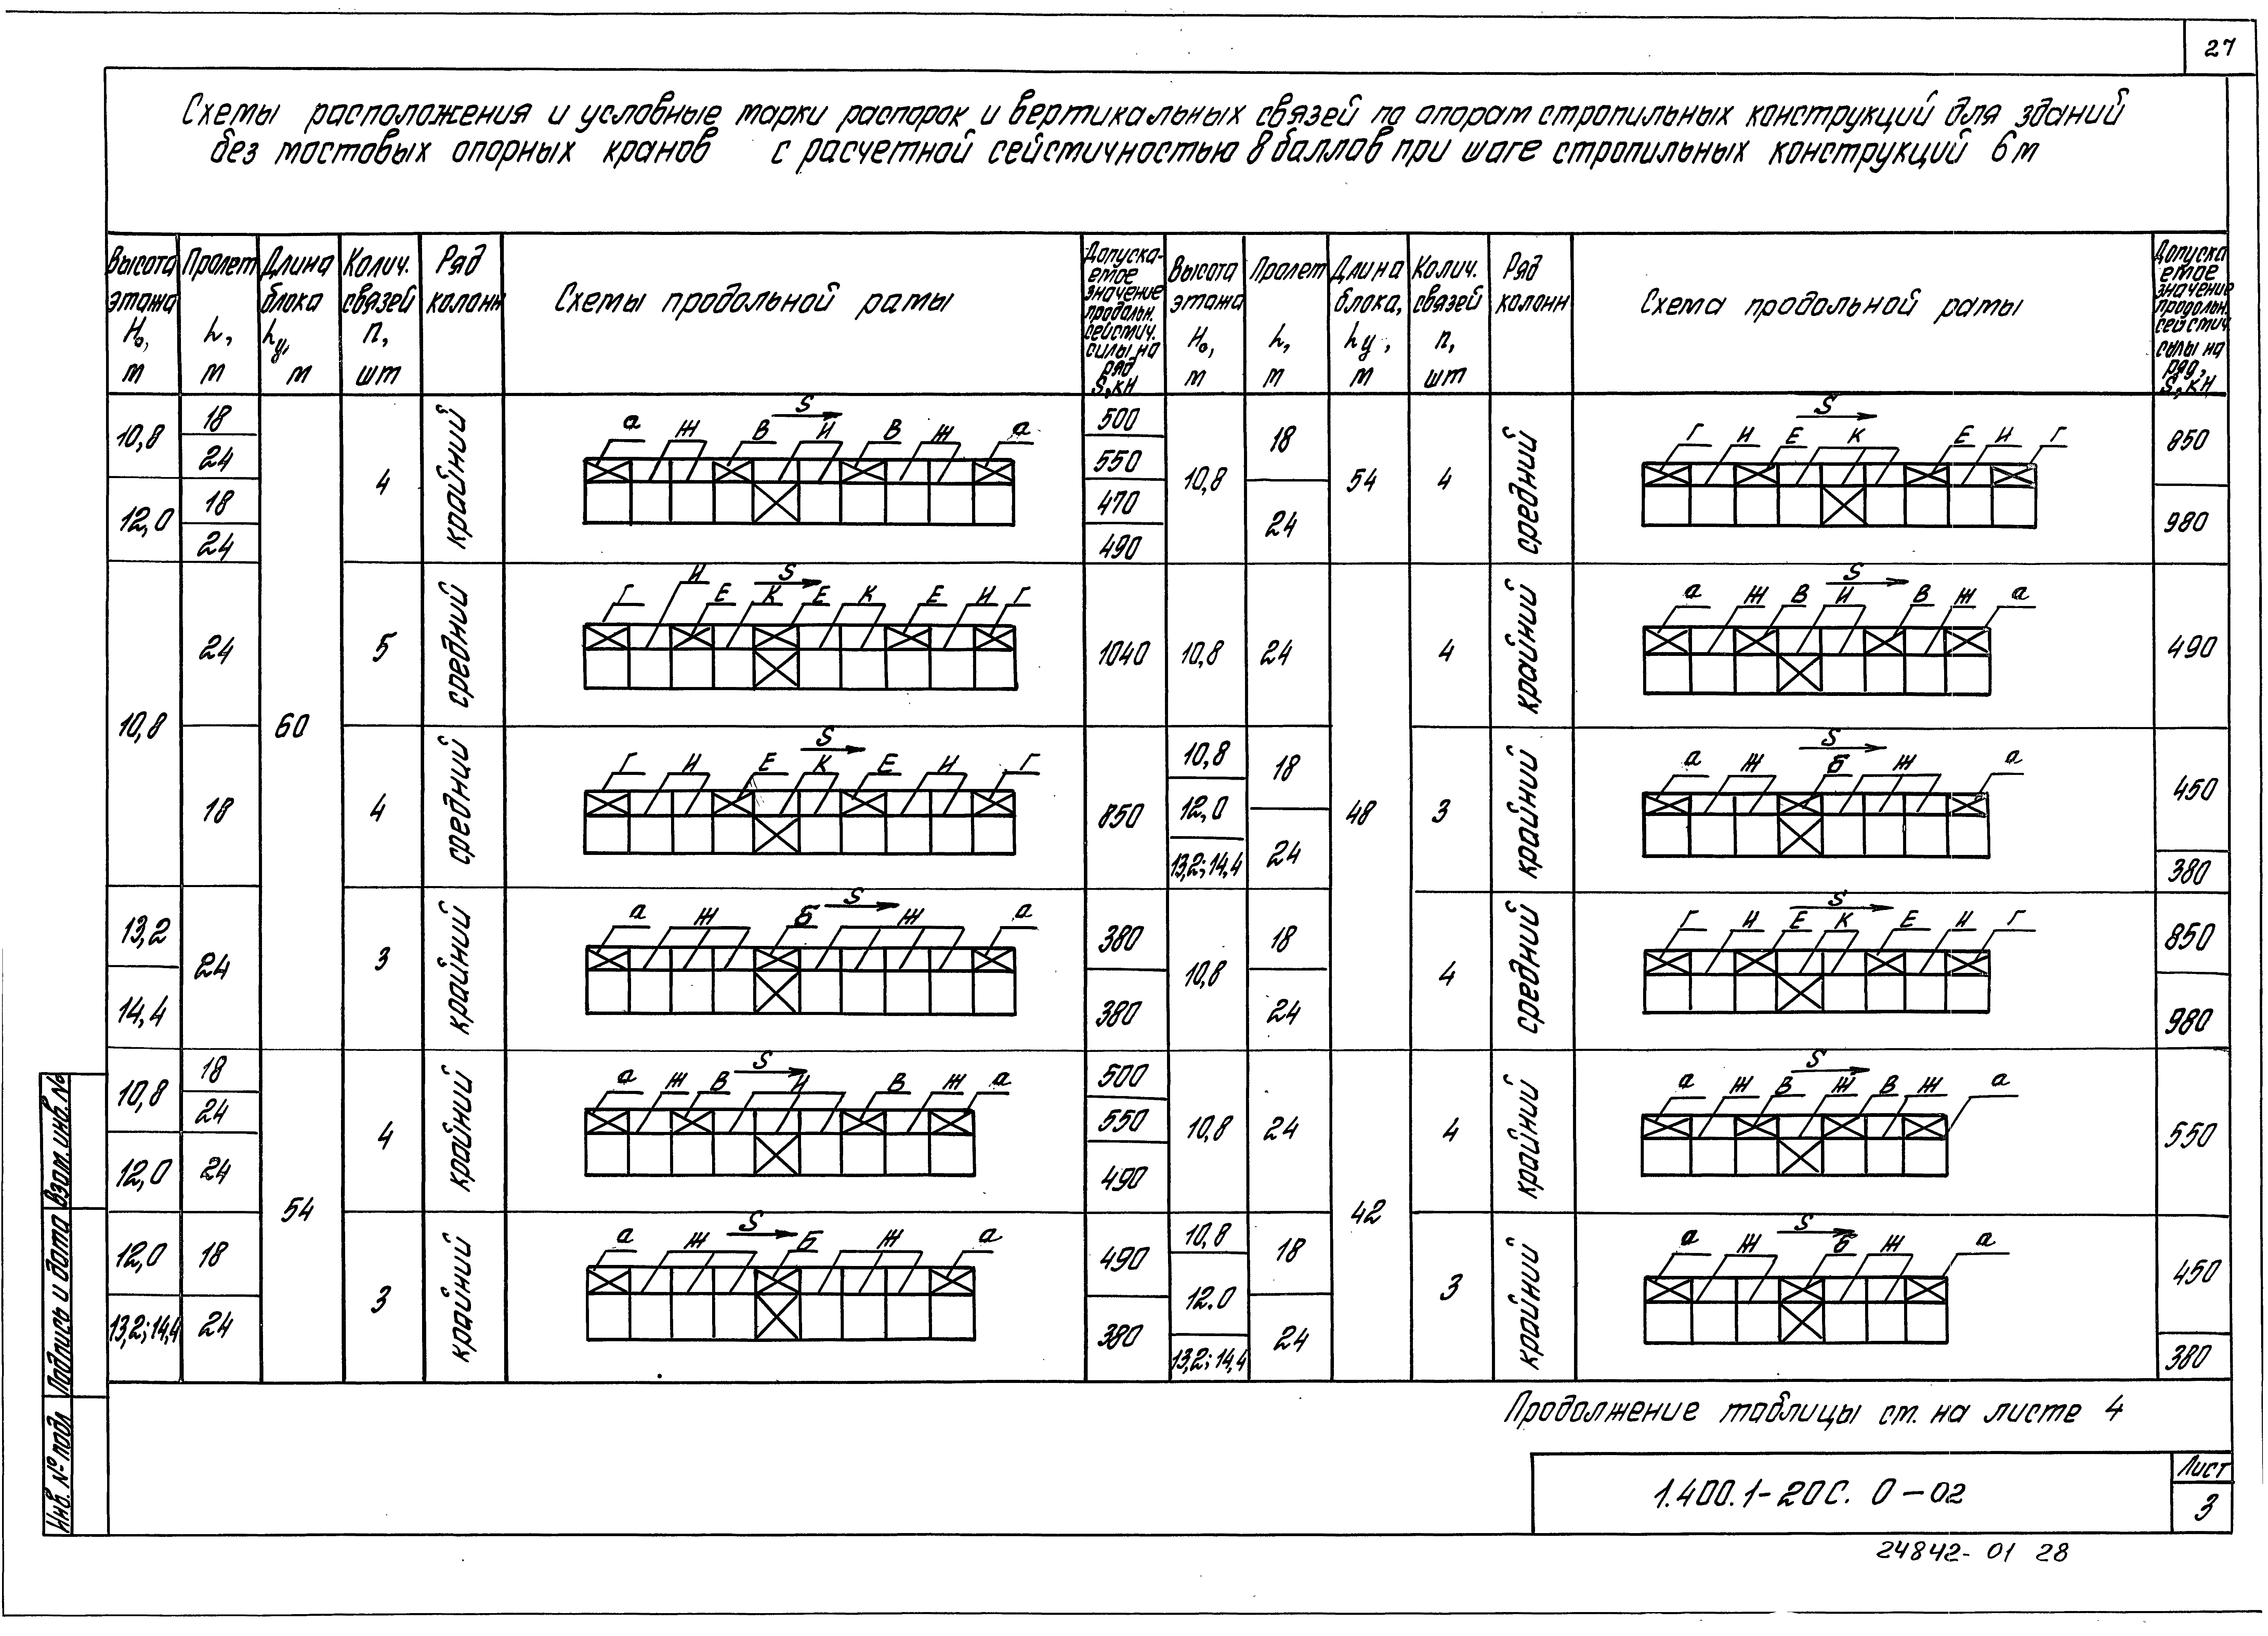 27
Схемы расположения и условные марки распорок и вертикальных связей по опорам стропильных конструкций для зданий
без мостовых опорных кранов с расчетной сейсмичностью 8 баллов при шаге стропильных конструкций 6 м
Высота этажа H₀, м
Пролет L, м
Длина блока Lу, м
Колич. связей n, шт
Ряд колонн
Схемы продольной рамы
Допускаемое значение продольн. сейсмич. силы на ряд S, кН
Высота этажа H₀, м
Пролет L, м
Длина блока, Lу, м
Колич. связей n, шт
Ряд колонн
Схема продольной рамы
Допускаемое значение продольн. сейсмич. силы на ряд, S, кН
10,8 18 24
12,0 18 24
60
4 крайний
S
а Ж В И В Ж а
500
550
470
490
10,8 24
5 средний
S
Г И Е К Е К Е И Г
1040
18
4 средний
S
Г И Е К Е И Г
850
13,2
14,4
24
3 крайний
S
а Ж Б Ж а
380
380
10,8 18 24
12,0 24
54
4 крайний
S
а Ж В И В Ж а
500
550
490
12,0 18
13,2; 14,4 24
3 крайний
S
а Ж Б Ж а
490
380
10,8 18 24
54
4 средний
S
Г И Е К Е И Г
850
980
10,8 24
48
4 крайний
S
а Ж В И В Ж а
490
10,8
12,0
13,2; 14,4
18
24
3 крайний
S
а Ж Б Ж а
450
380
10,8 18 24
4 средний
S
Г И Е К Е И Г
850
980
10,8 24
42
4 крайний
S
а Ж В Ж В Ж а
550
10,8
12.0
13,2; 14,4
18
24
3 крайний
S
а Ж Б Ж а
450
380
Продолжение таблицы см. на листе 4
1.400.1-20С. 0-02
Лист
3
24842-01 28
Инв. № подл
Подпись и дата
Взам. инв. №